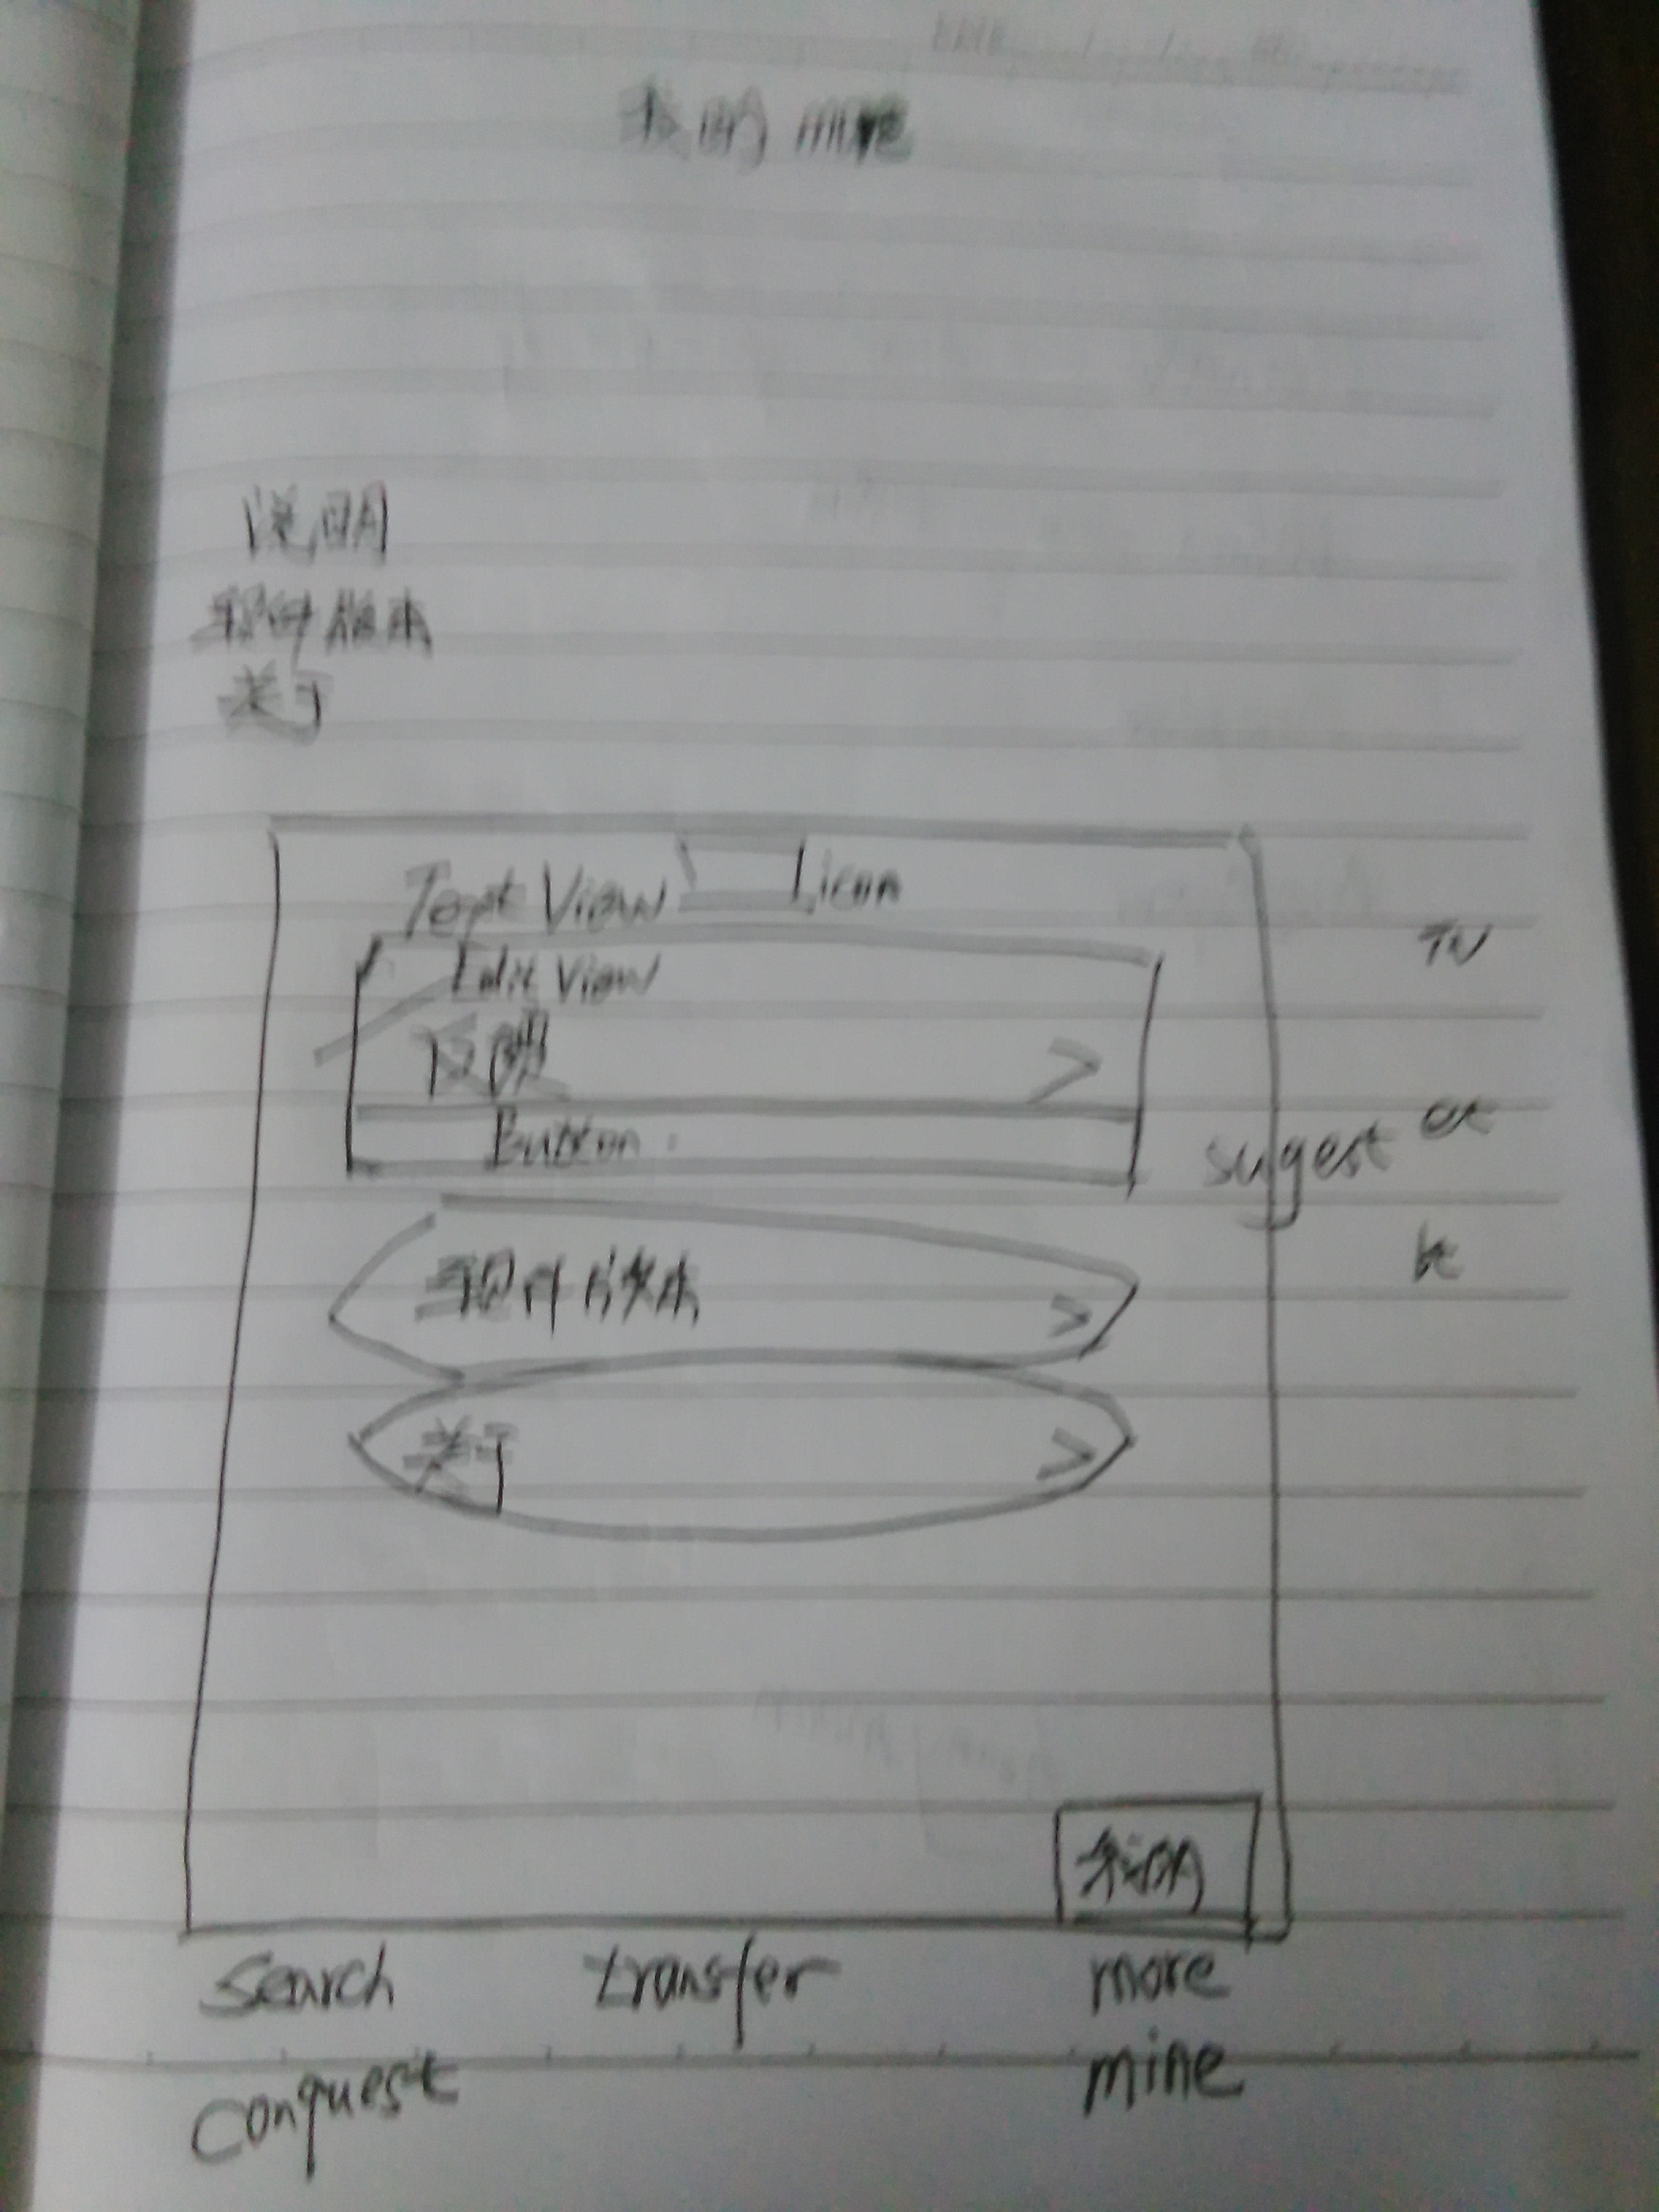 我的 mine
说明
软件版本
关于
Text View icon
Edit View
>
Button
软件版本 >
关于 >
TV
sugest et
bt
我的
search transfer more
conquest mine